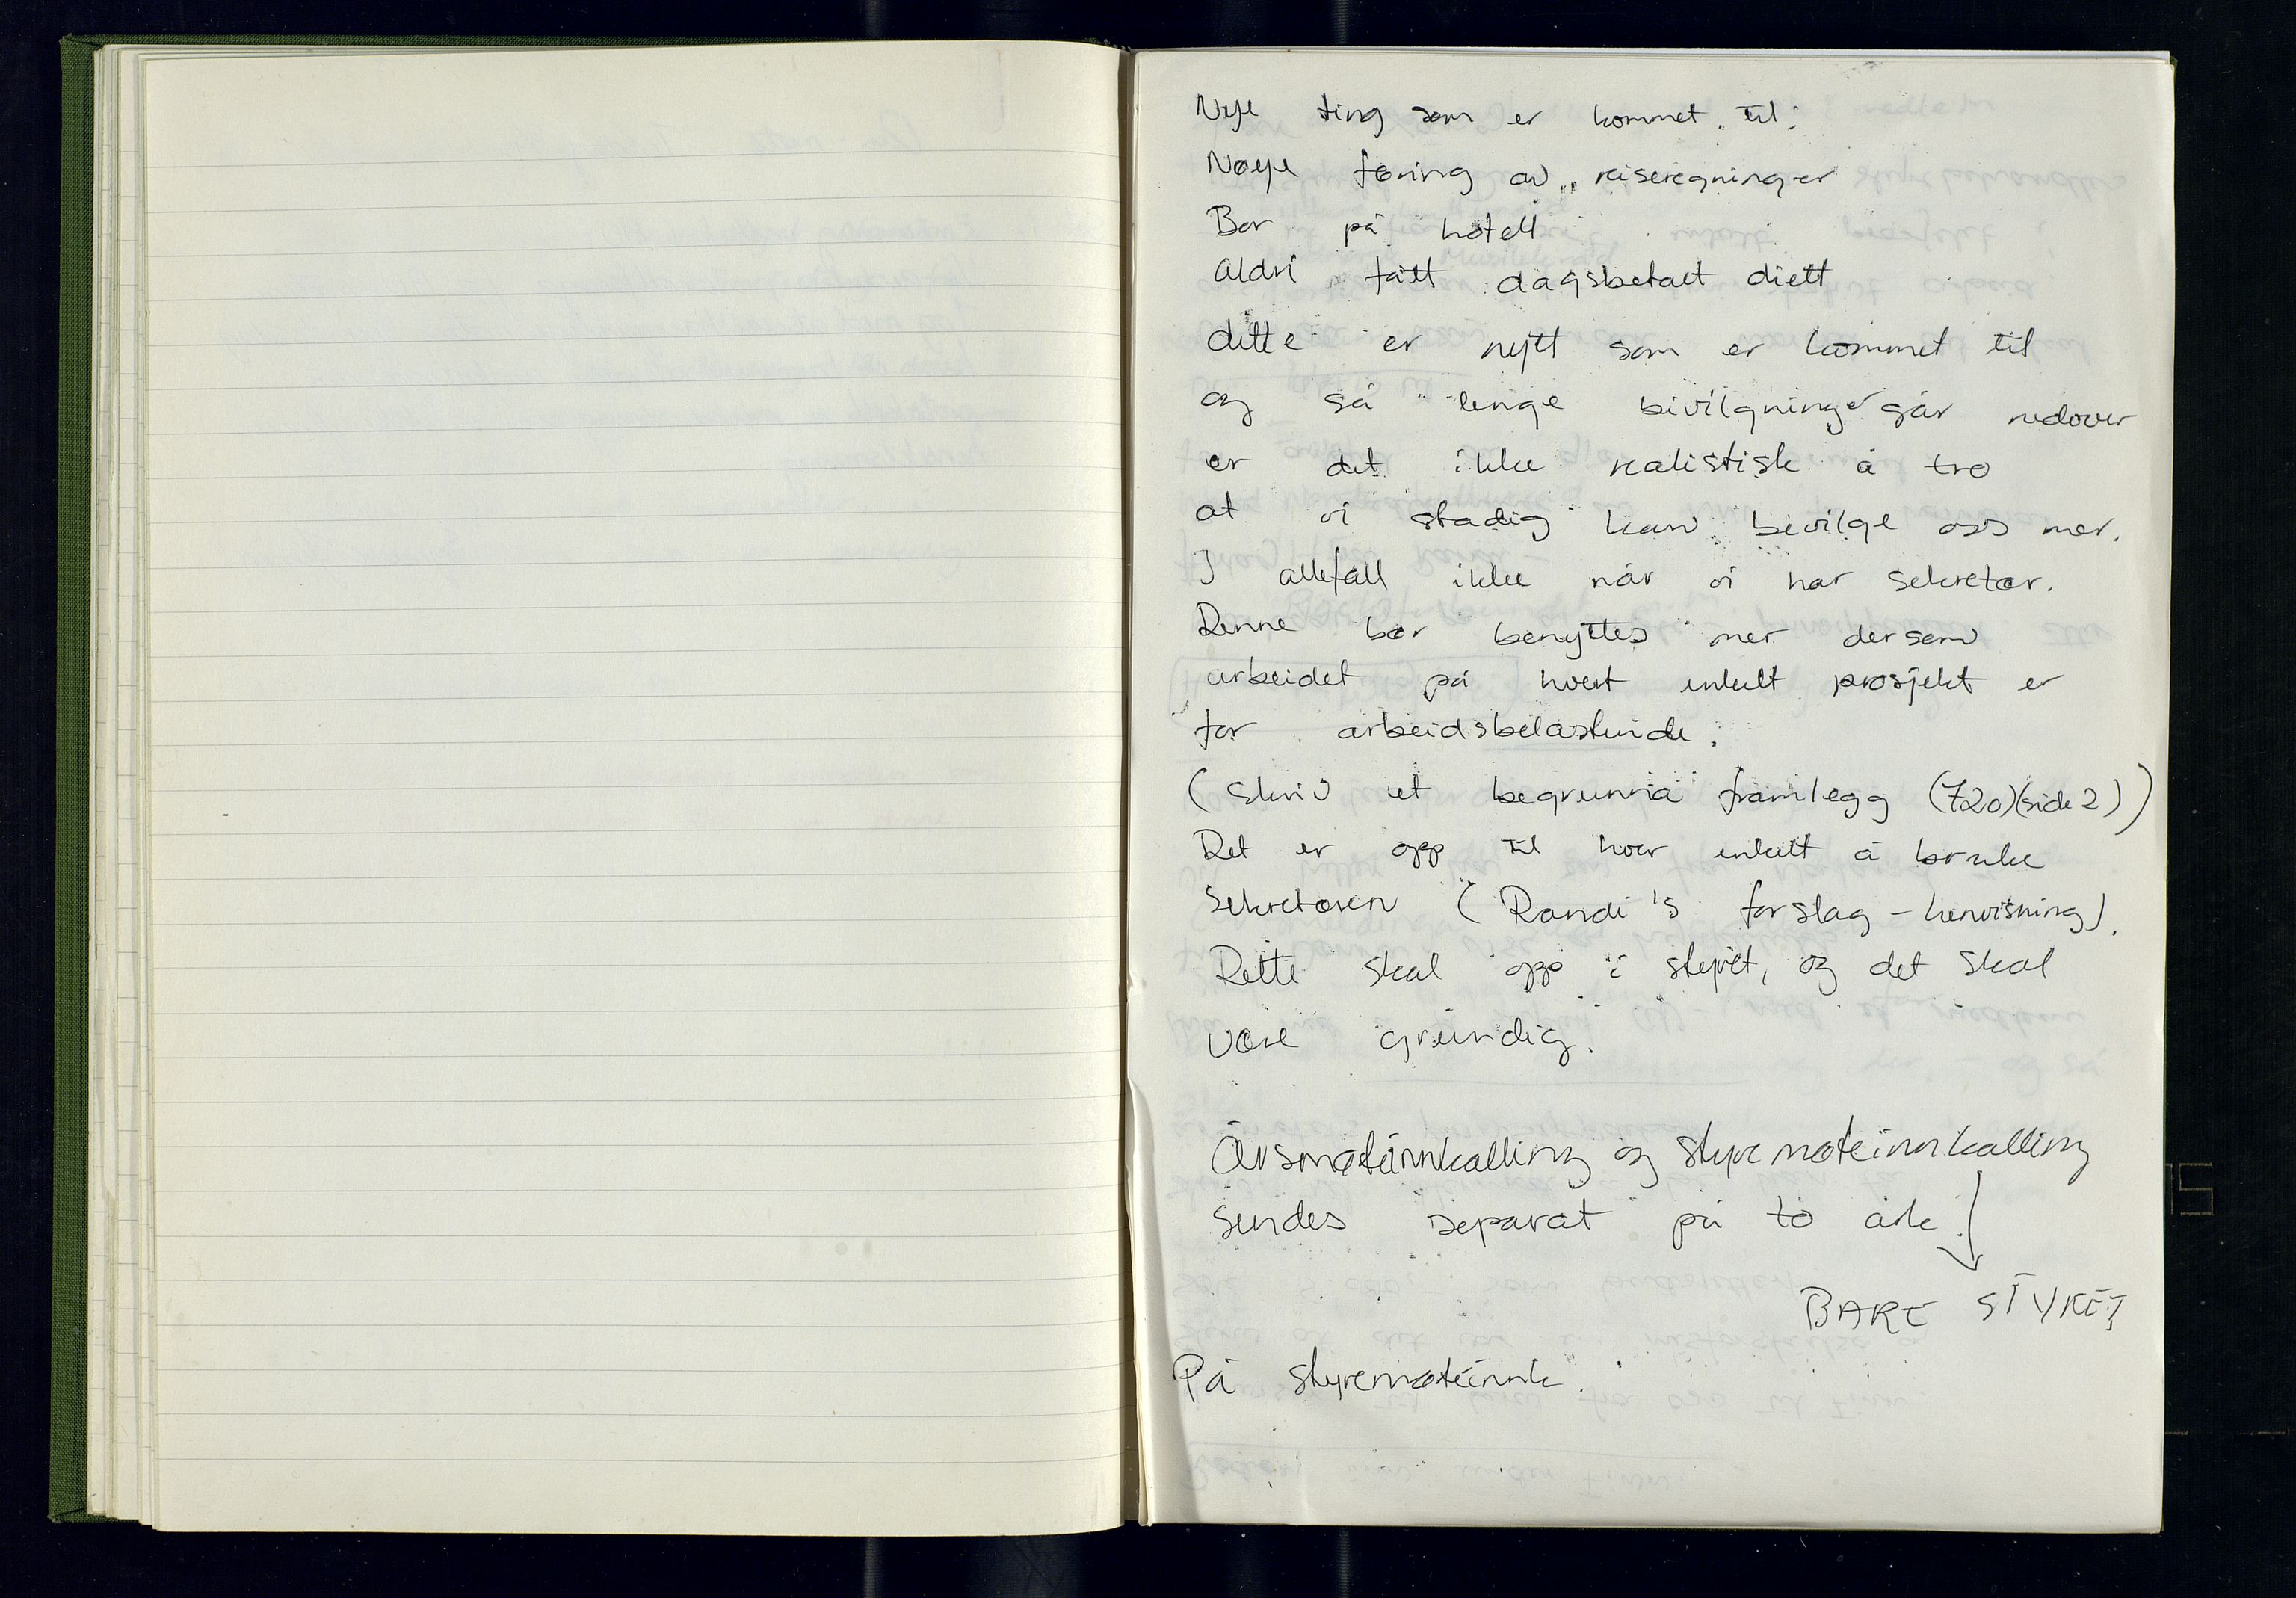 Nye ting som er kommet til:
Nøye føring av reiseregninger
Bor på hotell
Aldri fått dagsbetalt diett
dette er nytt som er kommet til
og så lenge bivilgninger går nedover
er det ikke realistisk å tro
at vi stadig kan bivilge oss mer.
I allefall ikke når vi har sekretær.
Denne bør benyttes mer dersom
arbeidet på hvert enkelt prosjekt er
for arbeidsbelastende.
(Skriv et begrunna framlegg (720)(side 2))
Det er opp til hver enkelt å bruke
sekretæren (Randi's forslag - henvisning).
Dette skal opp i styret, og det skal
være grundig.
Årsmøteinnkalling og styremøteinnkalling
sendes separat på to ark.
BARE STYRET
På styremøteinnk.